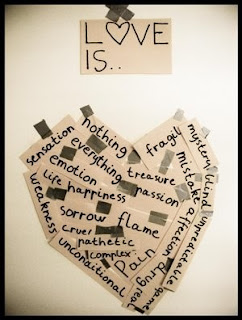 LOVE
IS..
nothing
sensation
everything
fragil
emotion
treasure
life happiness
passion
weakness
sorrow flame
cruel
pathetic
complex
unconditional
pain
drug
real
game
mystery
blind
mistake
affection
unpredictable